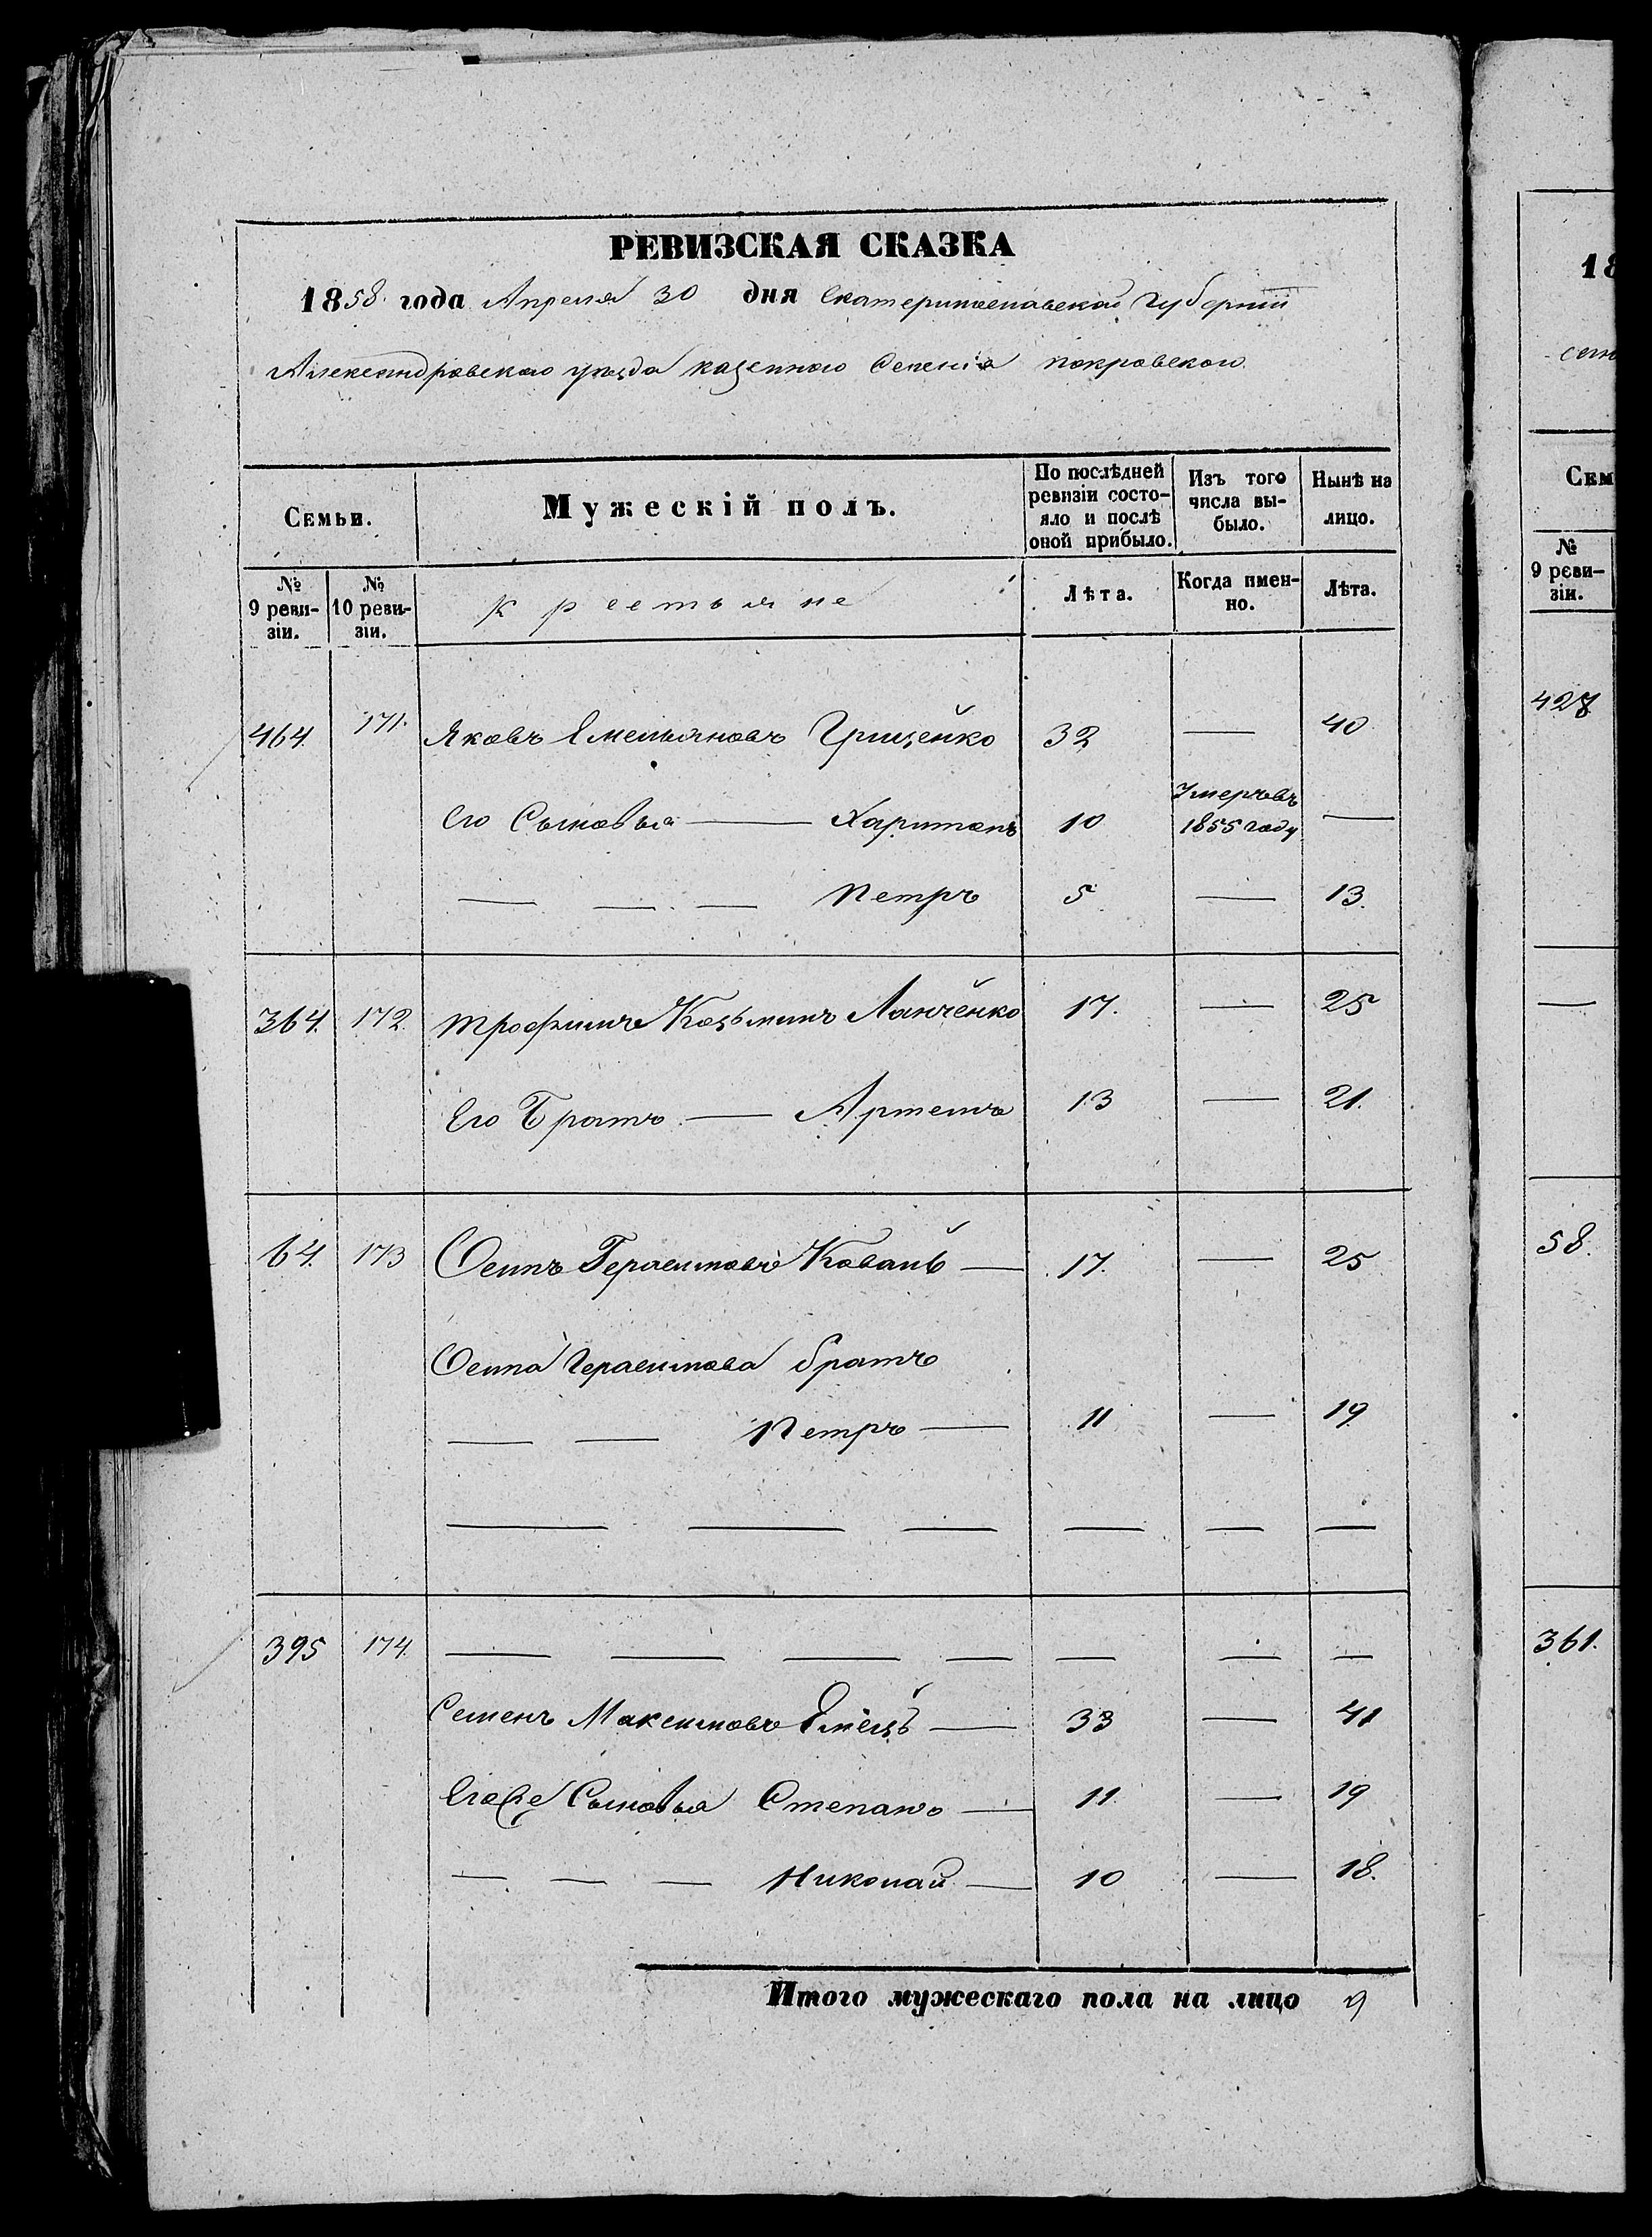 РЕВИЗСКАЯ СКАЗКА
1858 года Апреля 30 дня Екатеринославской Губернии
Александровского уезда казенного Селения Покровского
Семьи. Мужескій полъ. По послѣдней ревизіи состо-яло и послѣ оной прибыло. Изъ того числа вы-было. Нынѣ на лицо.
№ 9 реви-зіи. № 10 реви-зіи. Крестьяне Лѣта. Когда имен-но. Лѣта.
464. 171. Яковъ Емельяновъ Грищенко 32 — 40
Его Сыновья — Харитонъ 10 Умеръ въ 1855 году —
— — — Петръ 5 — 13.
364. 172. Трофимъ Козьминъ Ланченко 17. — 25
Его Братъ — Артемъ 13 — 21.
64. 173 Осипъ Герасимовъ Коваль — 17. — 25
Осипа Герасимова братъ
— — Петръ — 11 — 19
— — — — — —
395 174. — — — — — — —
Семенъ Максимовъ Емецъ — 33 — 41
Сыновья Степанъ — 11 — 19
— — — Николай — 10 — 18.
Итого мужескаго пола на лицо 9
18
Сем
№ 9 реви-зіи.
427
—
58.
361.